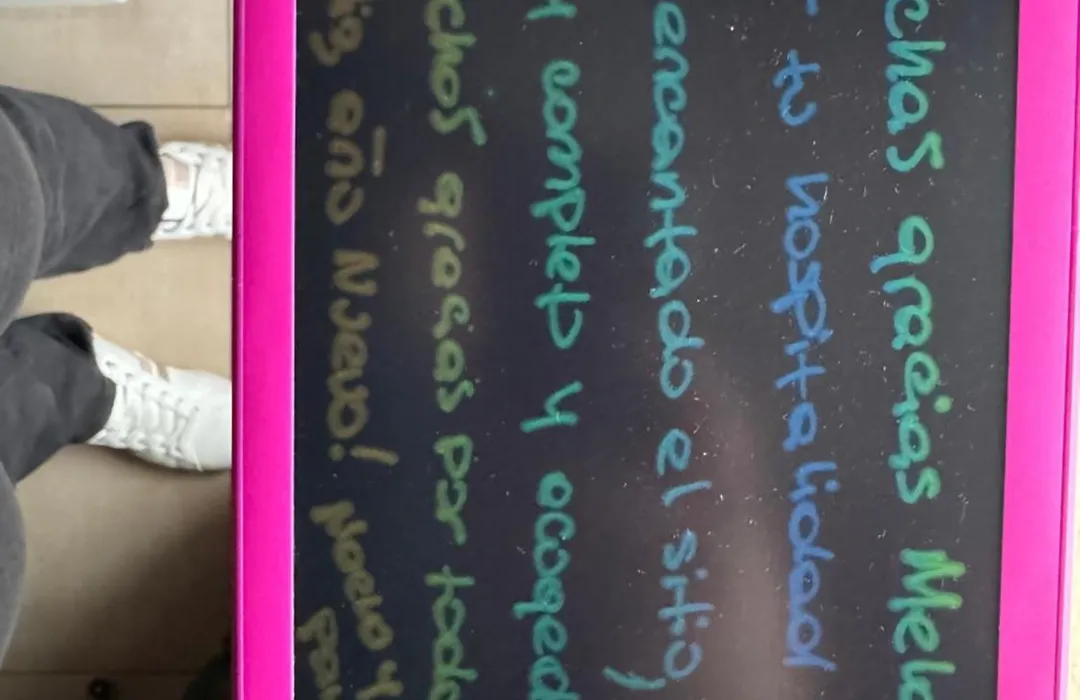 chas gracias Mela
r tu hospitalidad
encantado el sitio,
y completo y acoged
chas gracias por todo
iz año Nuevo!